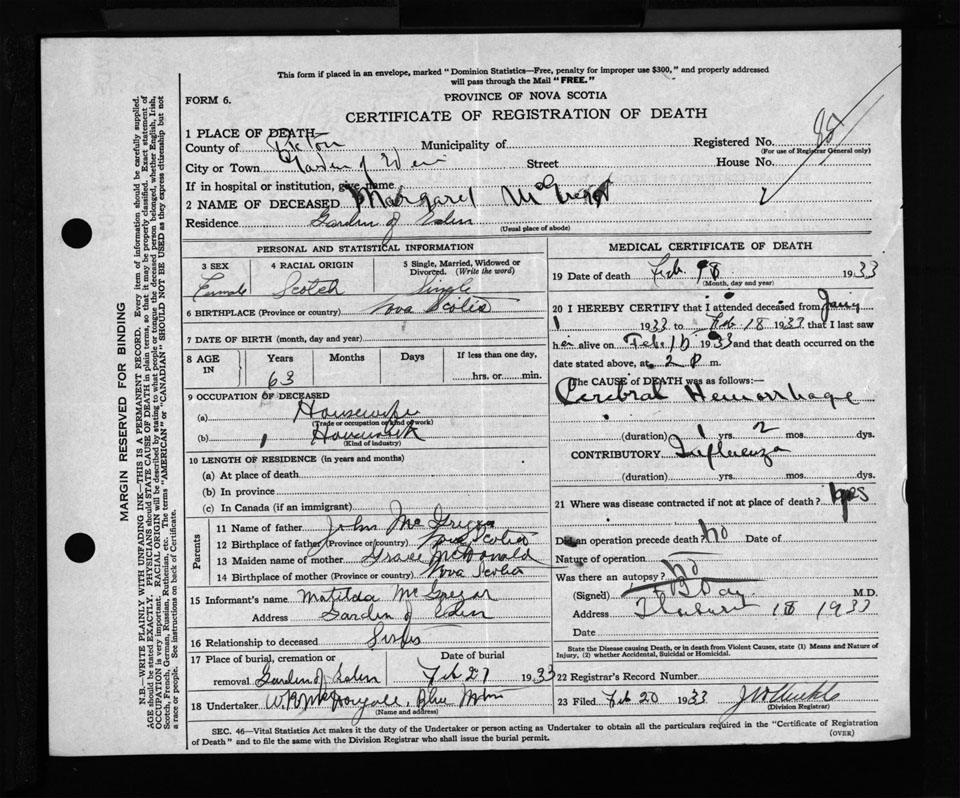 This form if placed in an envelope, marked "Dominion Statistics—Free, penalty for improper use $300," and properly addressed
will pass through the Mail "FREE."
FORM 6.
PROVINCE OF NOVA SCOTIA
CERTIFICATE OF REGISTRATION OF DEATH
1 PLACE OF DEATH—
County of Pictou Municipality of Registered No.
(For use of Registrar General only)
City or Town Garden of Eden Street House No.
If in hospital or institution, give name
2 NAME OF DECEASED Margaret
Residence Garden of Eden
(Usual place of abode)
PERSONAL AND STATISTICAL INFORMATION
3 SEX 4 RACIAL ORIGIN 5 Single, Married, Widowed or
Divorced. (Write the word)
Female Scotch Single
6 BIRTHPLACE (Province or country) Nova Scotia
7 DATE OF BIRTH (month, day and year)
8 AGE IN Years Months Days If less than one day,
63 hrs. or min.
9 OCCUPATION OF DECEASED
(a) Housewife
(Trade or occupation or kind of work)
(b) Housework
(Kind of industry)
10 LENGTH OF RESIDENCE (in years and months)
(a) At place of death
(b) In province
(c) In Canada (if an immigrant)
Parents
11 Name of father John
12 Birthplace of father (Province or country) Nova Scotia
13 Maiden name of mother McDonald
14 Birthplace of mother (Province or country) Nova Scotia
15 Informant's name Matilda McGregor
Address Garden of Eden
16 Relationship to deceased
17 Place of burial, cremation or Date of burial
removal Garden of Eden Feb 21 1933
18 Undertaker Blue Mtn
(Name and address)
MEDICAL CERTIFICATE OF DEATH
19 Date of death Feb 18 1933
(Month, day and year)
20 I HEREBY CERTIFY that I attended deceased from
1 1933 to Feb 18 1933 that I last saw
her alive on Feb 1933 and that death occurred on
date stated above, at 2 P m.
The CAUSE of DEATH was as follows:—
Cerebral Hemorrhage
(duration) 1 yrs. 2 mos. dys.
CONTRIBUTORY Influenza
(duration) yrs. mos. dys.
21 Where was disease contracted if not at place of death?
Did an operation precede death No Date of
Nature of operation
Was there an autopsy? No
(Signed) Day M.D.
Address 18 1933
Date
State the Disease causing Death, or in death from Violent Causes, state (1) Means and Nature of
Injury, (2) whether Accidental, Suicidal or Homicidal.
22 Registrar's Record Number
23 Filed Feb 20 1933
(Division Registrar)
SEC. 46—Vital Statistics Act makes it the duty of the Undertaker or person acting as Undertaker to obtain all the particulars required in the "Certificate of Registration
of Death" and to file the same with the Division Registrar who shall issue the burial permit. (OVER)
MARGIN RESERVED FOR BINDING
N.B.—WRITE PLAINLY WITH UNFADING INK—THIS IS A PERMANENT RECORD. Every item of information should be carefully supplied.
AGE should be stated EXACTLY. PHYSICIANS should STATE CAUSE OF DEATH in plain terms, so that it may be properly classified. Exact statement of
OCCUPATION is very important. RACIAL ORIGIN will be described by stating to what people or tongue the deceased person belonged, whether English, Irish,
Scotch, French, German, Russian, Ruthenian, etc. The terms "AMERICAN" or "CANADIAN" SHOULD NOT BE USED as they express citizenship but not
a race or people. See instructions on back of Certificate.